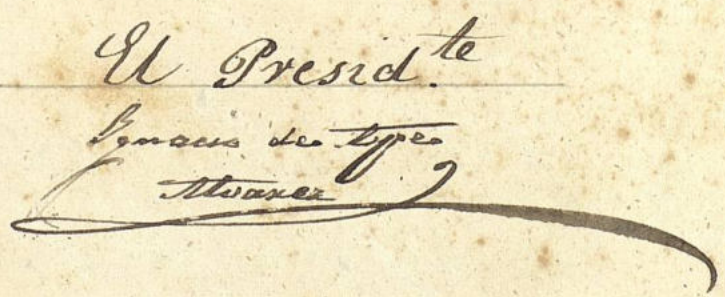 El Presid.te
Ignacio de Yepes
Alvarez